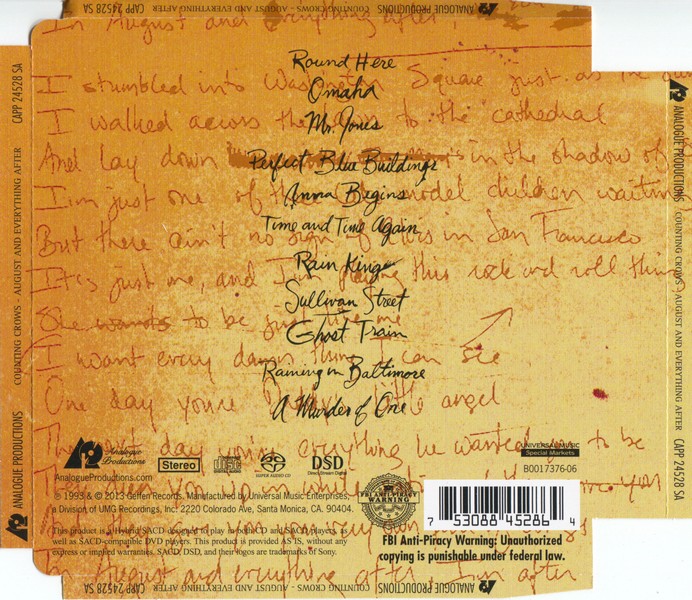 In August and everything after,
COUNTING CROWS - AUGUST AND EVERYTHING AFTER
ANALOGUE PRODUCTIONS
CAPP 24528 SA
Round Here
I stumbled into Washington Square just as the
Omaha
I walked across the to the cathedral
Mr. Jones
And lay down in the shadow of
Perfect Blue Buildings
I'm just one of model children waiting
Anna Begins
Time and Time Again
But there ain't no sign of in San Francisco
Rain King
It's just me, and I'm playing this rock and roll thing
Sullivan Street
She wants to be just like me
Ghost Train
I want every damn thing I can see
Raining in Baltimore
One day you're little angel
A Murder of One
day everything he wanted to be
Analogue Productions
AnalogueProductions.com
Stereo
SUPER AUDIO CD
DSD
Direct Stream Digital
UNIVERSAL MUSIC
Special Markets
B0017376-06
© 1993 & ℗ 2013 Geffen Records, Manufactured by Universal Music Enterprises,
a Division of UMG Recordings, Inc. 2220 Colorado Ave, Santa Monica, CA. 90404.
This product is a Hybrid SACD designed to play in both CD and SACD players, as
well as SACD-compatible DVD players. This product is provided AS IS, without any
express or implied warranties. SACD, DSD, and their logos are trademarks of Sony.
FBI ANTI-PIRACY
WARNING
7 53088 45286 4
FBI Anti-Piracy Warning: Unauthorized
copying is punishable under federal law.
In August and everything after I'm after
CAPP 24528 SA
COUNTING CROWS - AUGUST AND EVERYTHING AFTER
ANALOGUE PRODUCTIONS
CAPP 24528 SA
COUNTING CROWS - AUGUST AND EVERYTHING AFTER
ANALOGUE PRODUCTIONS
ANALOGUE PRODUCTIONS
COUNTING CROWS - AUGUST AND EVERYTHING AFTER
CAPP 24528 SA